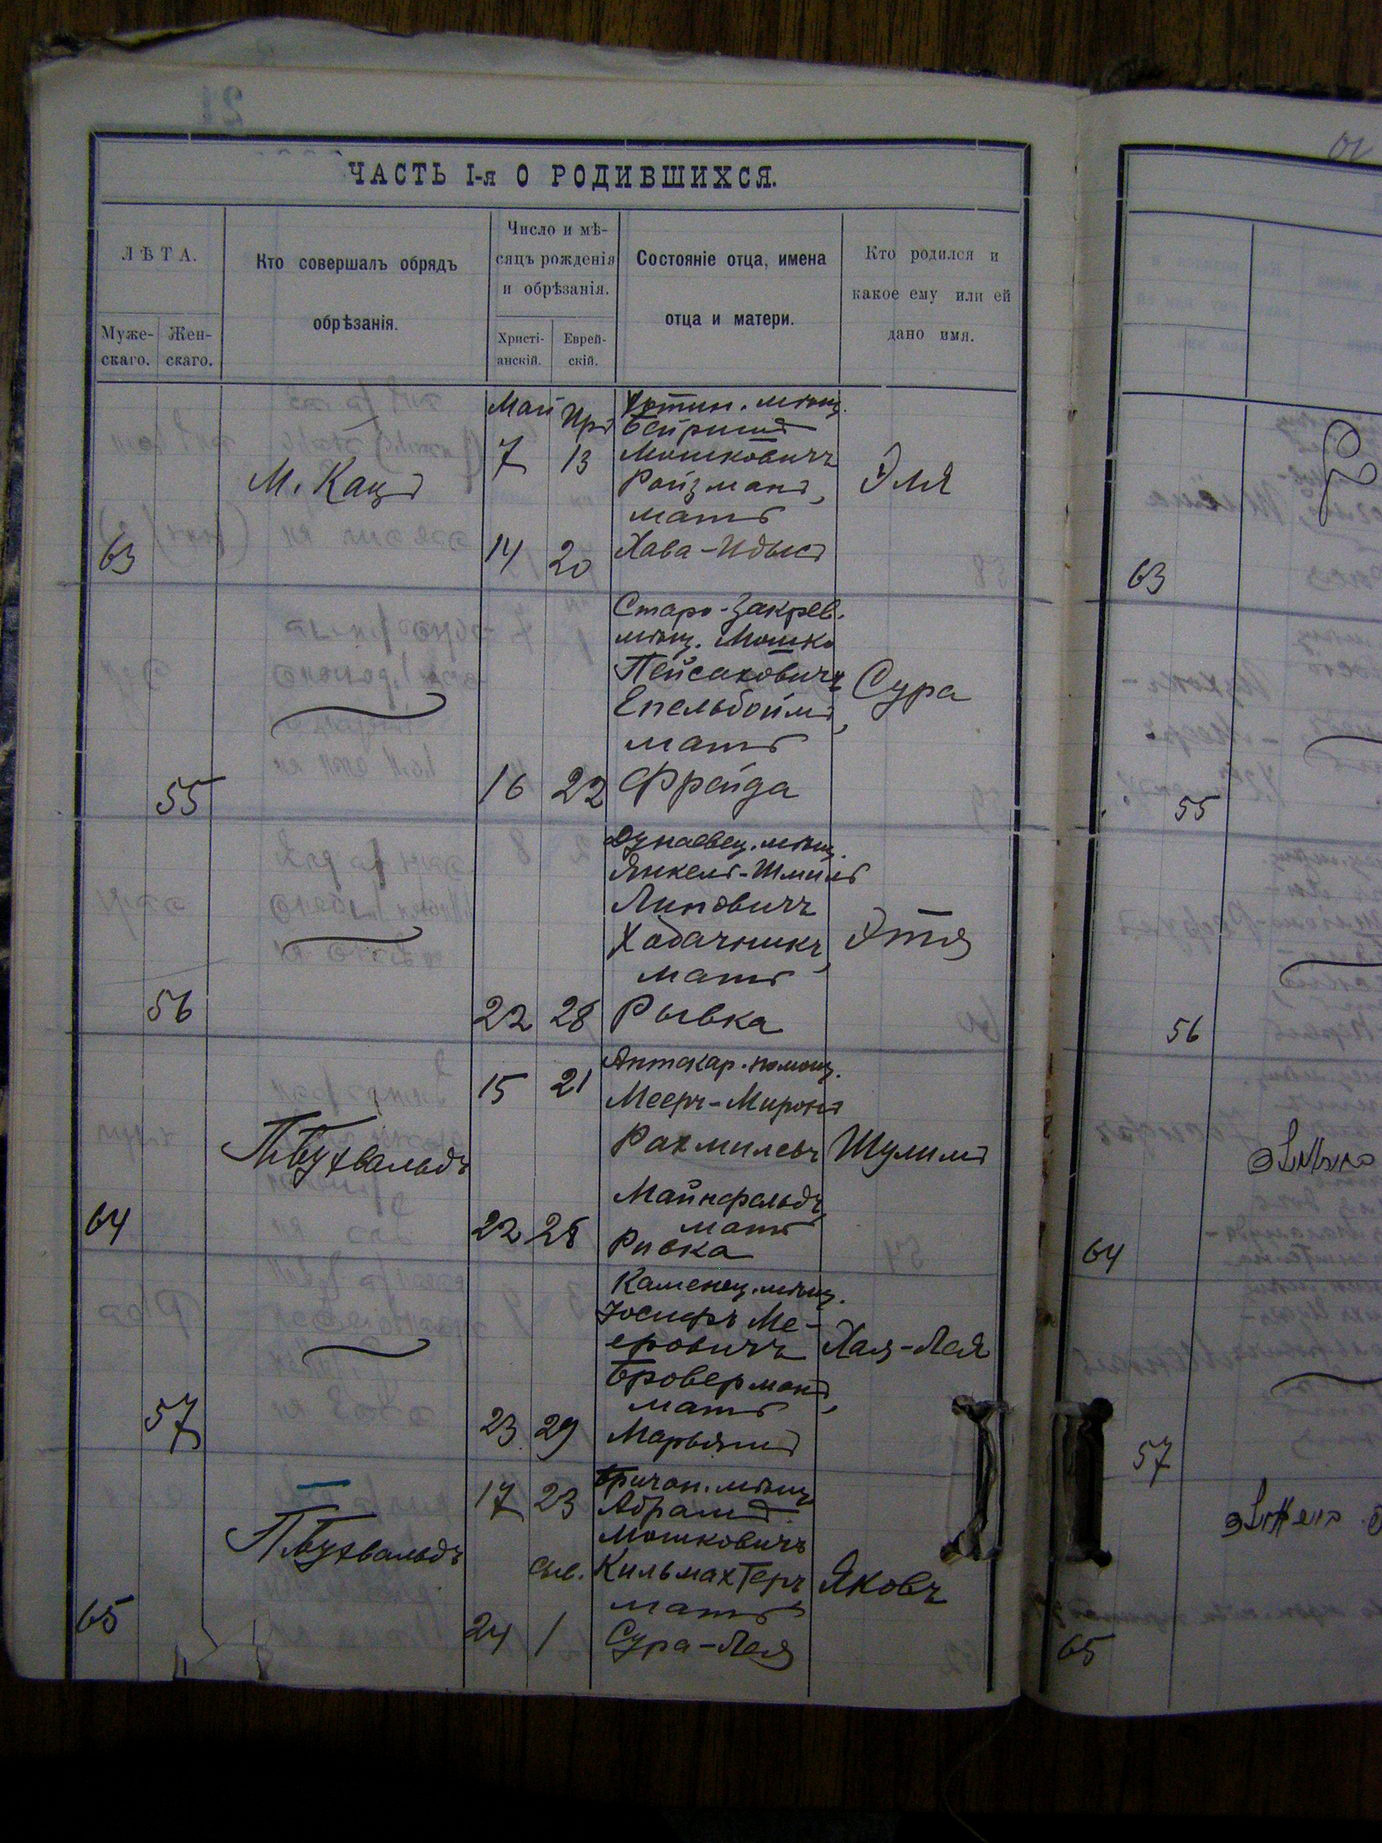 ЧАСТЬ I-я О РОДИВШИХСЯ.
ЛѢТА.
Муже-
скаго.
Жен-
скаго.
Кто совершалъ обрядъ
обрѣзанія.
Число и мѣ-
сяцъ рожденія
и обрѣзанія.
Христі-
анскій.
Еврей-
скій.
Состояніе отца, имена
отца и матери.
Кто родился и
какое ему или ей
дано имя.
Май
мѣщ.
7 13 Мошковичъ
М. Кацъ
Ройзманъ,
Эля
мать
63
14 20 Хава-Идысъ
Старо-Закрев.
мѣщ. Мошко
Пейсаховичъ
Сура
Епельбоймъ,
мать
55
16 22 Фрейда
Дунаевец. мѣщ.
Янкель-Шмиль
Липовичъ
Хабачникъ,
Этя
мать
56
22 28 Рывка
Аптекар. помощ.
15 21 Мееръ-Миронъ
П. Бухвальдъ
Рахмилевъ
Шулимъ
Майнфельдъ,
мать
64
22 28 Ривка
Каменец. мѣщ.
Іосифъ Ме-
еровичъ
Хая-Лея
Броверманъ,
мать
57
23 29 Марьямъ
17 23 Бричан. мѣщ.
Абрамъ
П. Бухвальдъ
Мошковичъ
Сив. Кильмахтеръ
Яковъ
мать
65
24 1 Сура-Лея
63
55
56
64
57
65